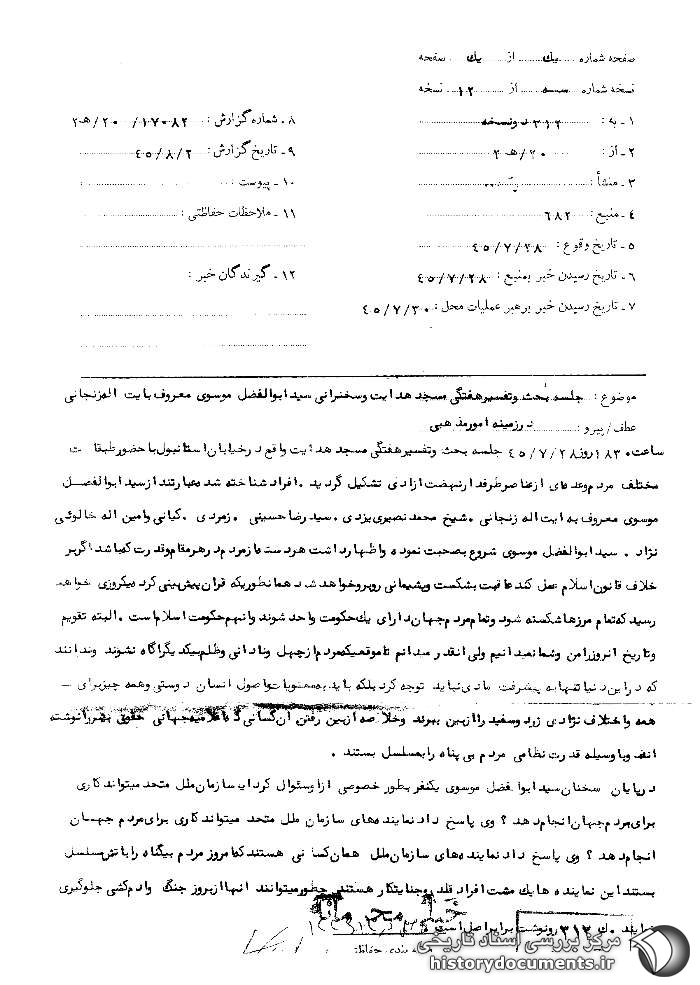 صفحه شماره ....يك.... از ....يك.... صفحه
نسخه شماره ....سه.... از ....۱۲.... نسخه
۱ـ به : ۳۱۲ دونسخه
۲ـ از : ۲۰/هـ ۲
۳ـ منشأ :
۴ـ منبع : ۶۸۲
۵ـ تاریخ وقوع : ۴۵/۷/۲۸
۶ـ تاریخ رسیدن خبر بمنبع : ۴۵/۷/۲۸
۷ـ تاریخ رسیدن خبر برهبر عملیات محل : ۴۵/۷/۳۰
۸ـ شماره گزارش : ۱۷۰۸۲/ ۲۰/هـ ۲
۹ـ تاریخ گزارش : ۴۵/۸/۲
۱۰ـ پیوست :
۱۱ـ ملاحظات حفاظتی :
۱۲ـ گیرندگان خبر :
موضوع : جلسه بحث وتفسیرهفتگی مسجد هدایت وسخنرانی سید ابوالفضل موسوی معروف بایت الهزنجانی
عطف/پیرو : درزمینه امورمذهبی
ساعت ۱۸۳۰روز ۴۵/۷/۲۸ جلسه بحث وتفسیرهفتگی مسجد هدایت واقع درخیابان استانبول باحضورطبقات
مختلف مردم وعده‌ای ازعناصرطرفدارنهضت ازادی تشکیل گردید . افراد شناخته شده عبارتند ازسید ابوالفضل
موسوی معروف به ایت اله زنجانی . شیخ محمد نصیری یزدی . سید رضا حسینی . زمردی . کیانی وامین اله خالوئی
نژاد . سید ابوالفضل موسوی شروع بصحبت نموده واظهارداشت هردسته ازمردم درهرمقام وقدرت که باشد اگربر
خلاف قانون اسلام عمل کند عاقبت بشکست وپشیمانی روبروخواهد شد همانطوریکه قران پیش بینی کرده یکروزی خواهد
رسید که تمام مرزها شکسته شود وتمام مردم جهان دارای یك حکومت واحد شوند وانهم حکومت اسلام است . البته تقویم
وتاریخ انروزرامن وشما نمیدانیم ولی انقدر میدانم تاموقعیکه مردم ازجهل ونادانی وظلم بیکدیگراگاه نشوند وندانند
که دراین دنیا تنها به پیشرفت مادی نباید توجه کرد بلکه باید به معنویات واصول انسان دوستی وهمه چیزبرای ـ
همه واختلاف نژادی زرد وسفید راازبین ببرند وخلاصه ازبین رفتن ان کسانی که اعلامیه جهانی حقوق بشررانوشته
اند وباوسیله قدرت نظامی مردم بی پناه رابمسلسل بستند .
درپایان سخنان سید ابوالفضل موسوی یکنفر بطور خصوصی ازاوسئوال کرد ایا سازمان ملل متحد میتواند کاری
برای مردم جهان انجام دهد ؟ وی پاسخ داد نماینده‌های سازمان ملل متحد میتواند کاری برای مردم جهان
انجام دهد ؟ وی پاسخ داد نماینده‌های سازمان ملل همان کسانی هستند که امروز مردم بیگناه رابا تش مسلسل
بستند این نماینده ها یك مشت افراد قلدر وجنایتکار هستند چطور میتوانند انها ازبروز جنگ وادم کشی جلوگیری
نمایند . ك ۳۱۲ رونوشت برابراصل است
خیلی محرمانه
طبقه بندی حفاظتی
مرکز بررسی اسناد تاریخی
historydocuments.ir